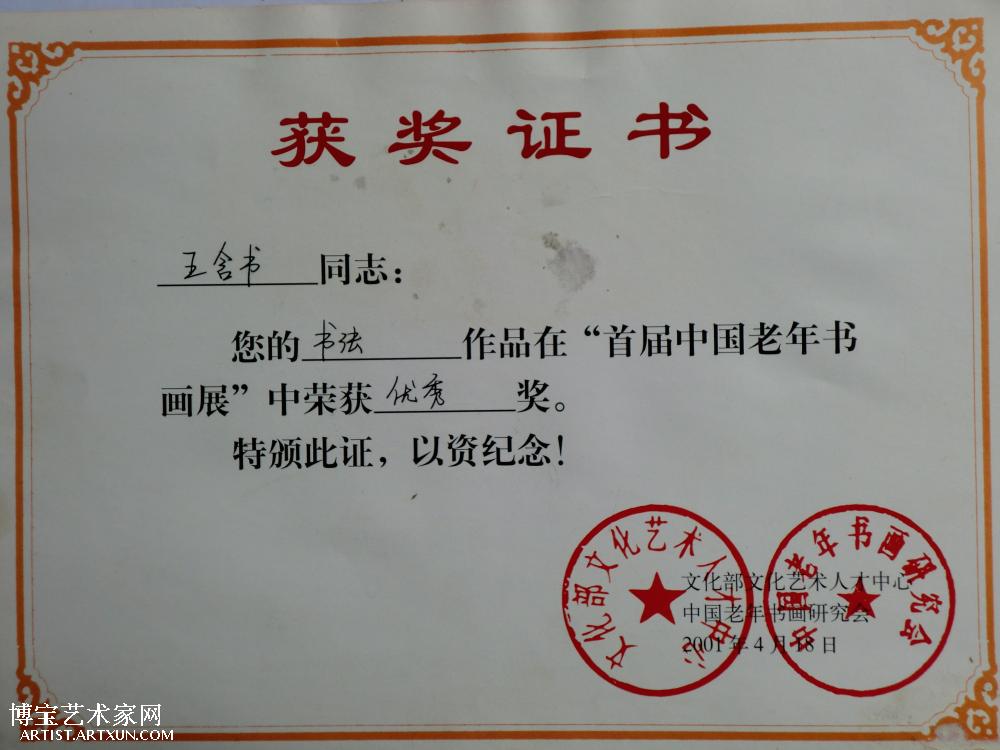 获奖证书
王含书同志：
您的书法作品在“首届中国老年书
画展”中荣获优秀奖。
特颁此证，以资纪念！
文化部文化艺术人才中心
中国老年书画研究会
文化部文化艺术人才中心
中国老年书画研究会
2001年4月18日
博宝艺术家网
ARTIST.ARTXUN.COM